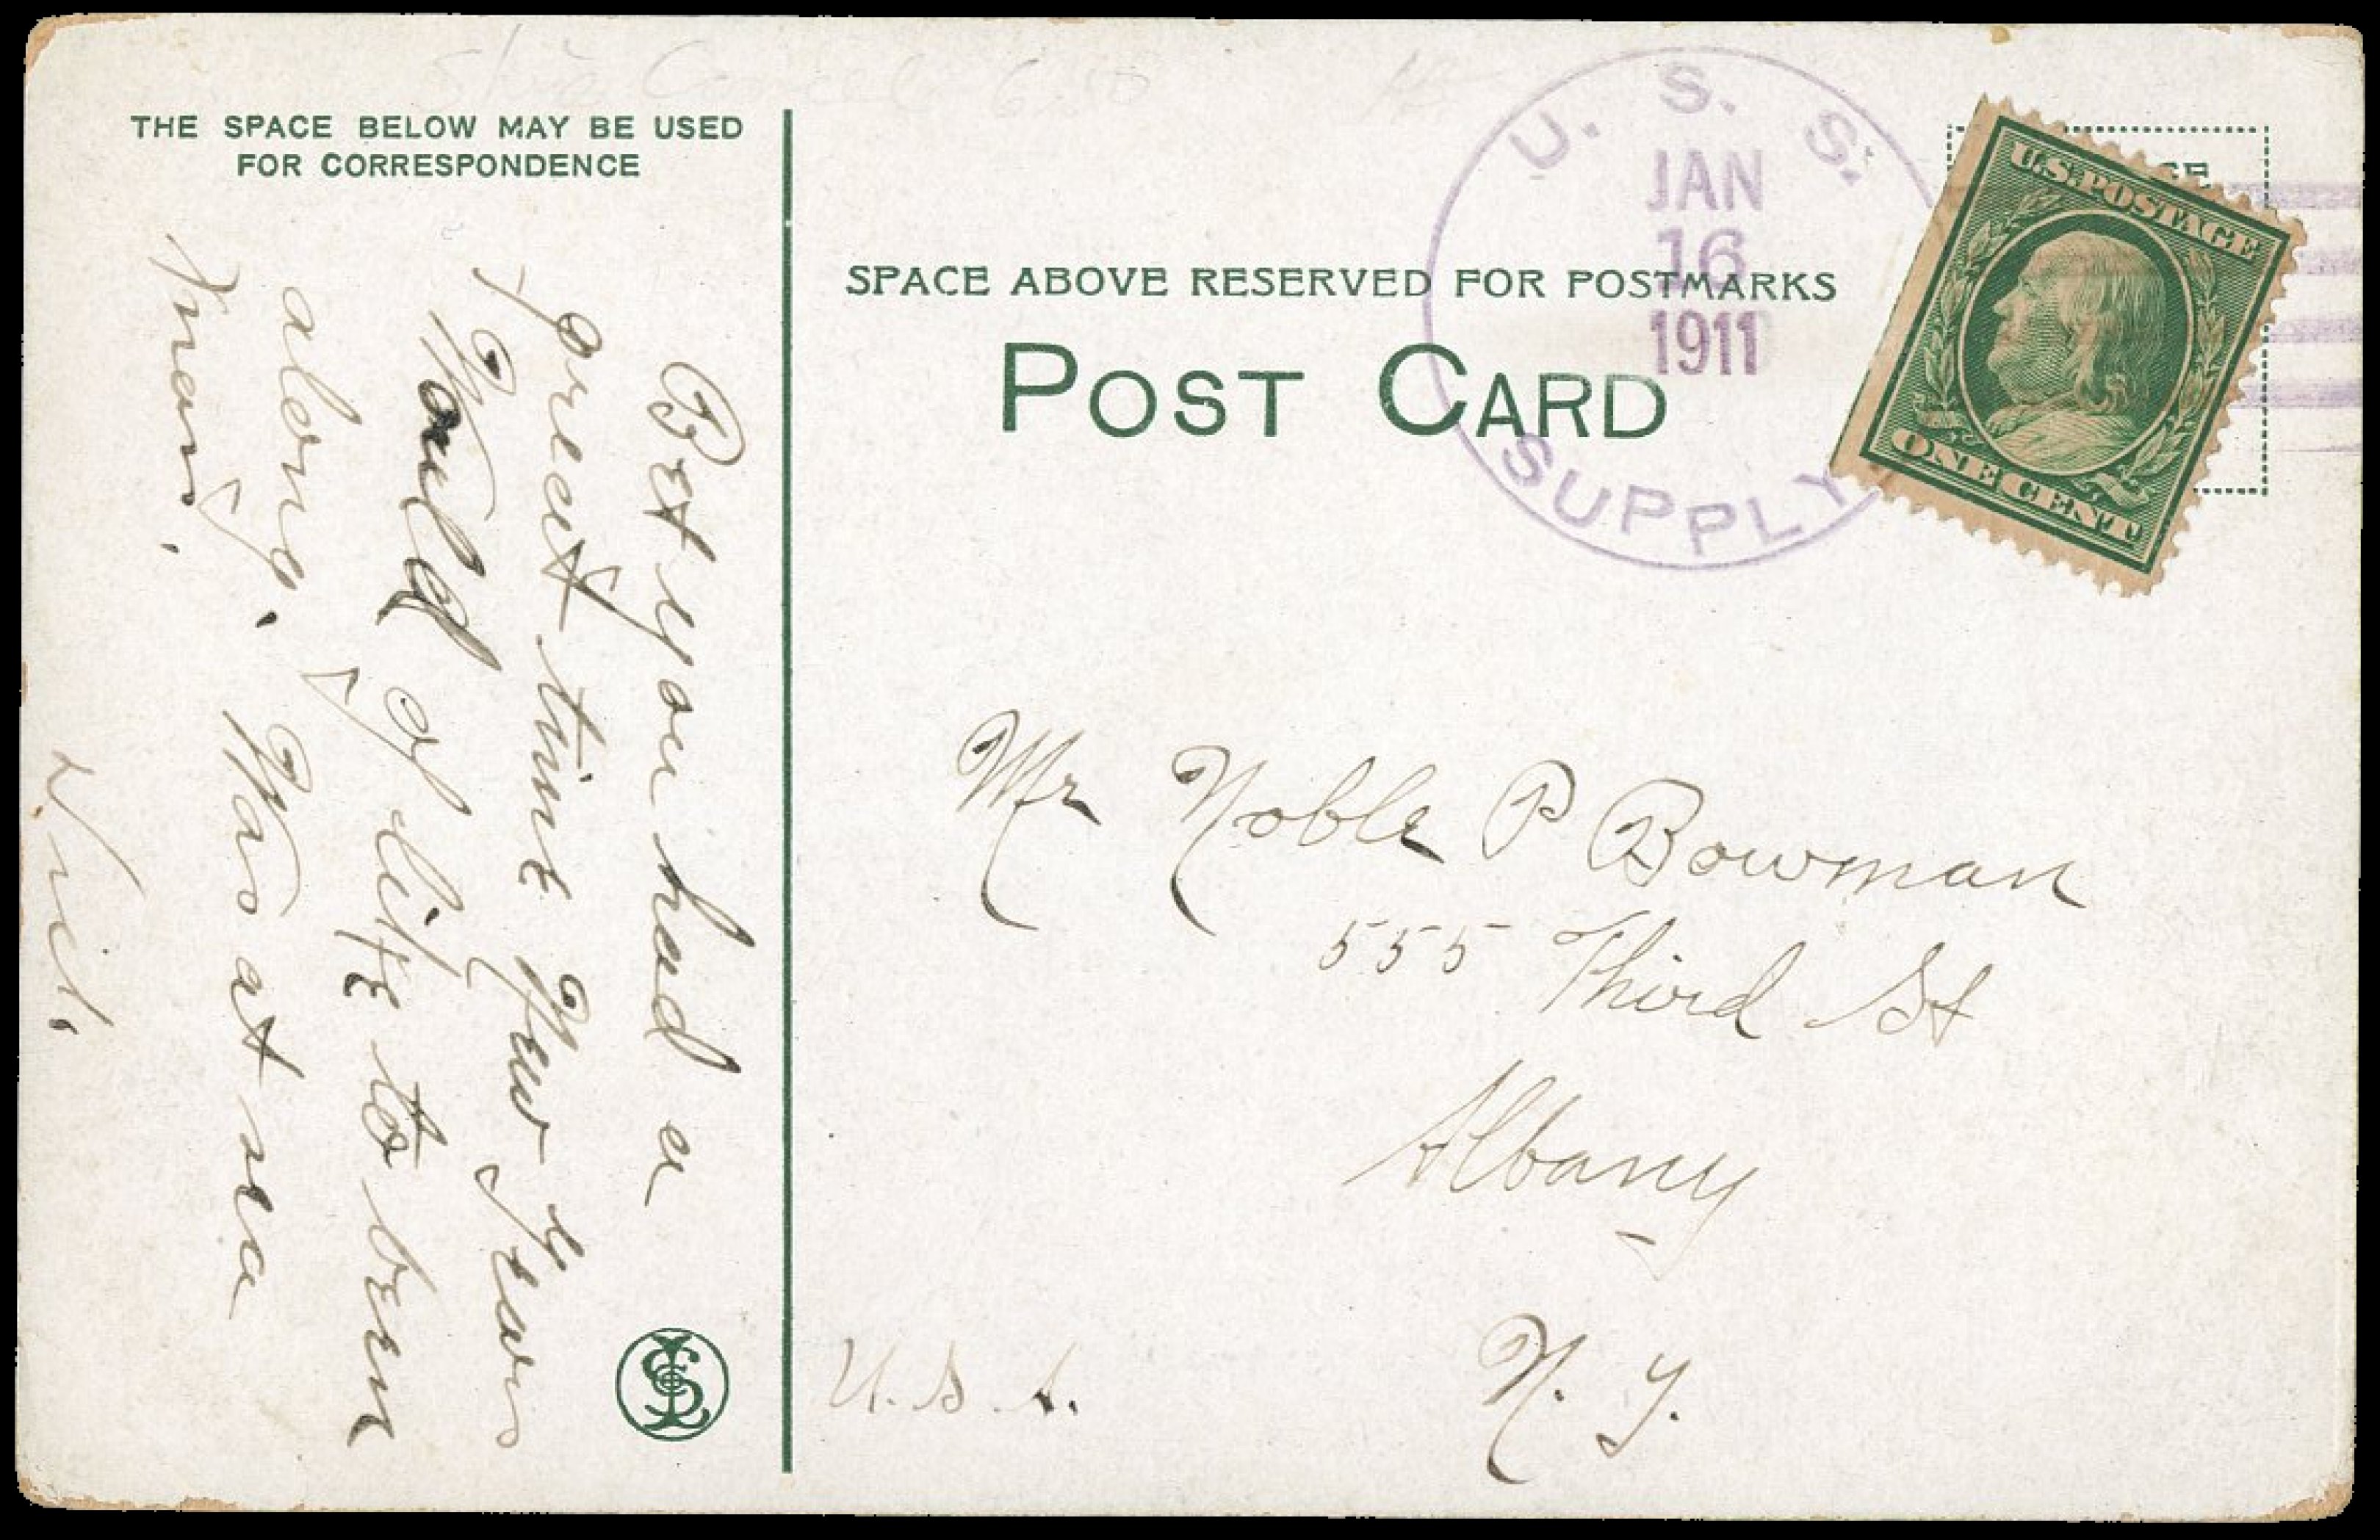 THE SPACE BELOW MAY BE USED
FOR CORRESPONDENCE
Bet you had a
great time New Years
Would of like to been
along. Was at sea
Xmas.
Neil.
U. S. S.
JAN
16
1911
SUPPLY
SPACE ABOVE RESERVED FOR POSTMARKS
POST CARD
U.S. POSTAGE
ONE CENT
Mr Noble P Bowman
555 Third St
Albany
N. Y.
U. S. A.